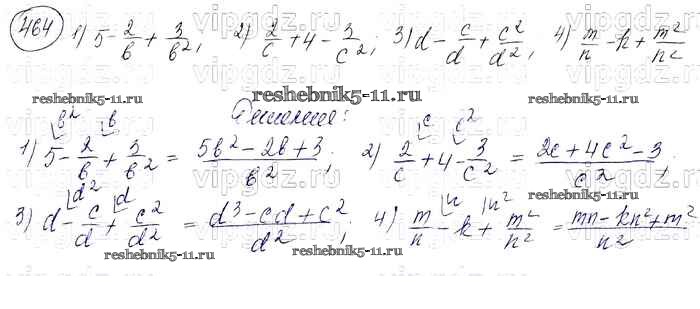 464 1) 5 - 2/b + 3/b²; 2) 2/c + 4 - 3/c²; 3) d - c/d + c²/d²; 4) m/n - k + m²/n²
vipgdz.ru vipgdz.ru vipgdz.ru
reshebnik5-11.ru reshebnik5-11.ru reshebnik5-11.ru
Решение:
1) 5 - 2/b + 3/b² = (5b² - 2b + 3)/b²; 2) 2/c + 4 - 3/c² = (2c + 4c² - 3)/c²;
vipgdz.ru vipgdz.ru vipgdz.ru
3) d - c/d + c²/d² = (d³ - cd + c²)/d²; 4) m/n - k + m²/n² = (mn - kn² + m²)/n²
reshebnik5-11.ru reshebnik5-11.ru reshebnik5-11.ru